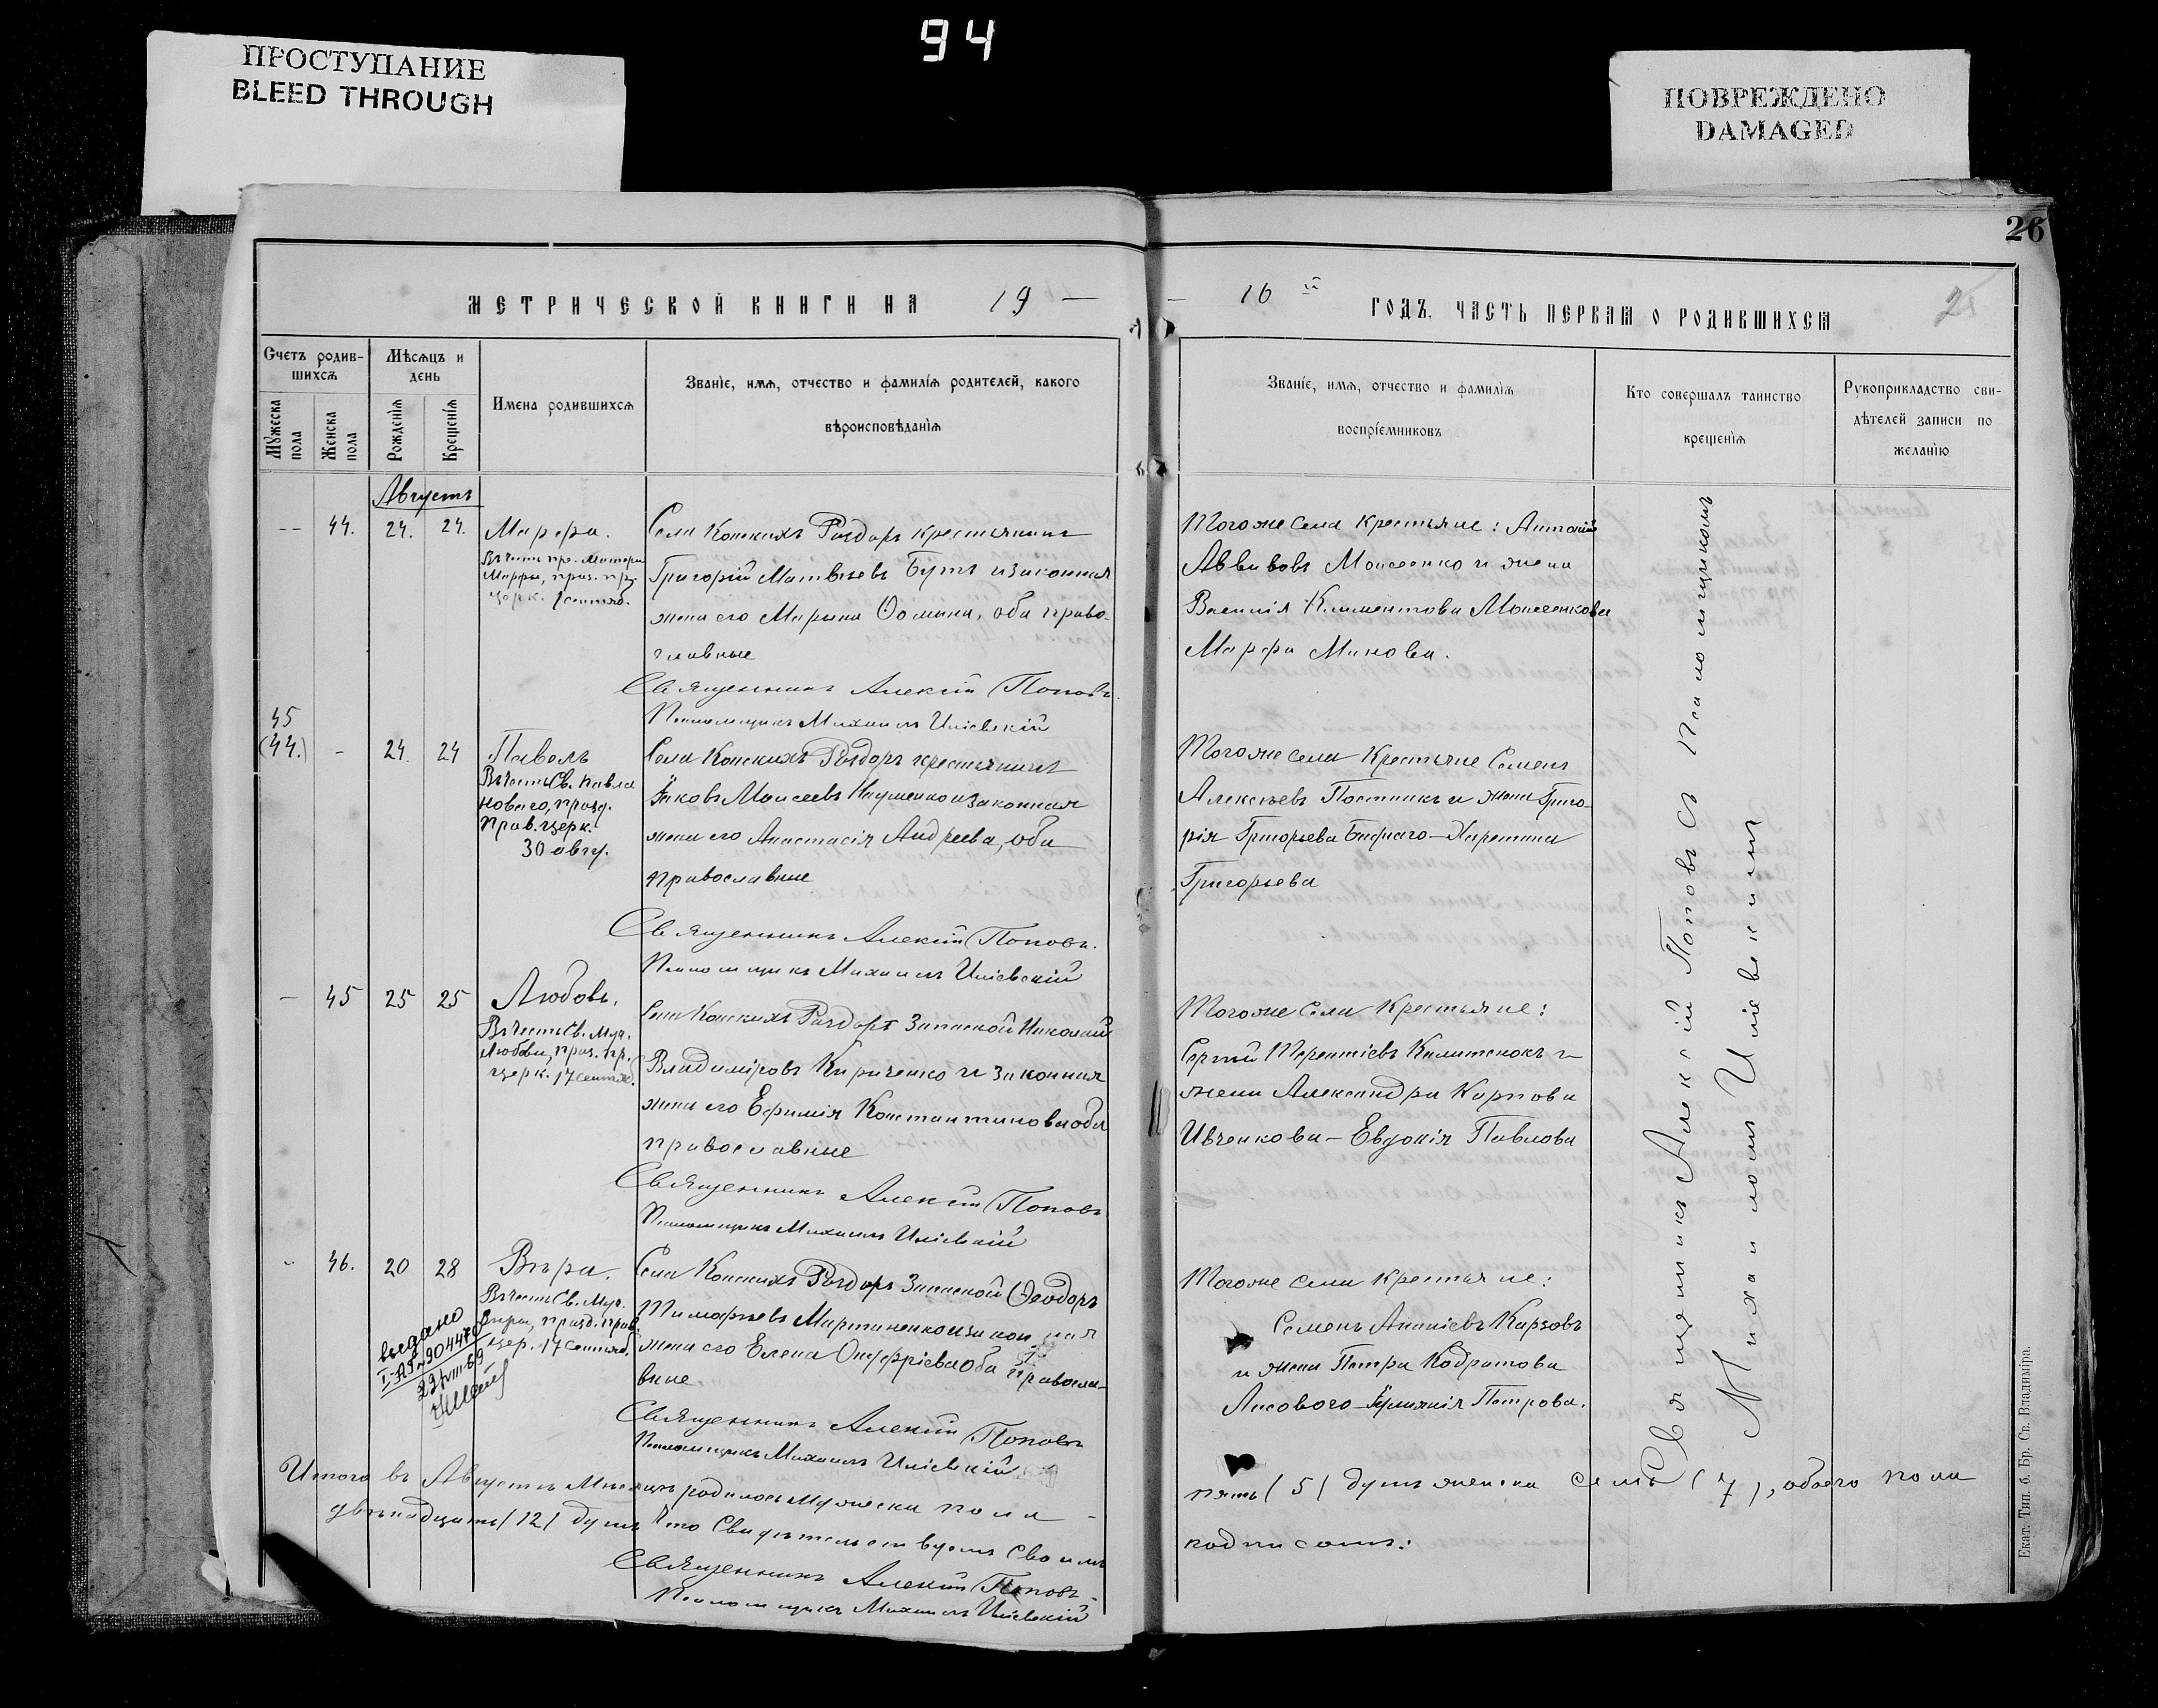 94
ПРОСТУПАНИЕ
BLEED THROUGH
ПОВРЕЖДЕНО
DAMAGED
26
МЕТРИЧЕСКОЙ КНИГИ НА 19 —
— 16 й ГОДЪ, ЧАСТЬ ПЕРВАЯ О РОДИВШИХСЯ
Счетъ родив-
шихсѧ
Мужеска пола
Женска пола
Мѣсѧцъ и
день
Рожденія
Крещенія
Имена родившихсѧ
Званіе, имѧ, отчество и фамилія родителей, какого
вѣроисповѣданія
Званіе, имѧ, отчество и фамилія
воспріемниковъ
Кто совершалъ таинство
крещенія
Рукоприкладство сви-
дѣтелей записи по
желанію
Августъ
-- 44. 24. 24. Марфа.
Въ честь пр. Матери
Марфы, праз. пр.
церк. 1 сентяб.
Села Конскихъ Раздоръ крестьянинъ
Григорій Матвѣевъ Бутъ и законная
жена его Марына Ѳомина, оба право-
славные
Священникъ Алексій Поповъ.
Псаломщикъ Михаилъ Илiевскій
Тогоже села крестьяне: Антоній
Аввивовъ Моисеенко и жена
Василія Климентова Моисеенкова
Марфа Минова.
45
(44.) - 24. 24 Павелъ
Въ честь Св. Павла
Новаго, празд.
прав. церк.
30 авгу.
Села Конскихъ Раздоръ крестьянинъ
Яковъ Моисеевъ Науменко и законная
жена его Анастасія Андреева, оба
православные
Священникъ Алексій Поповъ.
Псаломщикъ Михаилъ Илiевскій
Тогоже села Крестьяне Семенъ
Алексѣевъ Постникъ и жена Григо-
рія Григорьева Бѣднаго – Харетина
Григорьева
— 45 25 25 Любовь.
Въ честь Св. Муч.
Любови, праз. пр.
церк. 17 сентяб.
Села Конскихъ Раздоръ Запасной Николай
Владиміровъ Кириченко и законная
жена его Ефимія Константинова оба
православные
Священникъ Алексій Поповъ
Псаломщикъ Михаилъ Илiевскій
Тогоже села Крестьяне:
Сергій Терентіевъ Калитенокъ и
жена Александра Карпова
Ивченкова – Евдокія Павлова
46. 20 28 Вѣра.
Въ честь Св. Муч.
Вѣры, празд. прав.
цер. 17 Сентяб.
выдано
Села Конскихъ Раздоръ Запасной Ѳеодоръ
Тимофѣевъ Мартыненко и законная
жена его Елена Онуфріева оба правосла-
вные
Священникъ Алексій Поповъ
Псаломщикъ Михаилъ Илiевскій
Тогоже села Крестьяне:
Семенъ Ананіевъ Карзовъ
и жена Петра Кодратова
Лисового – Петрова.
Священникъ Алексій Поповъ съ Псаломщикомъ
Михаиломъ Илiевскимъ
Итого въ Августѣ Мѣсяцѣ родилось Мужеска пола –
пять (5) душъ женска семь (7), обоего пола
двѣнадцать (12) душъ Что Свидѣтельствуемъ Своимъ
подписомъ:
Священникъ Алексій Поповъ
Псаломщикъ Михаилъ Илiевскій
Екат. Тип. б. Бр. Св. Владиміра.